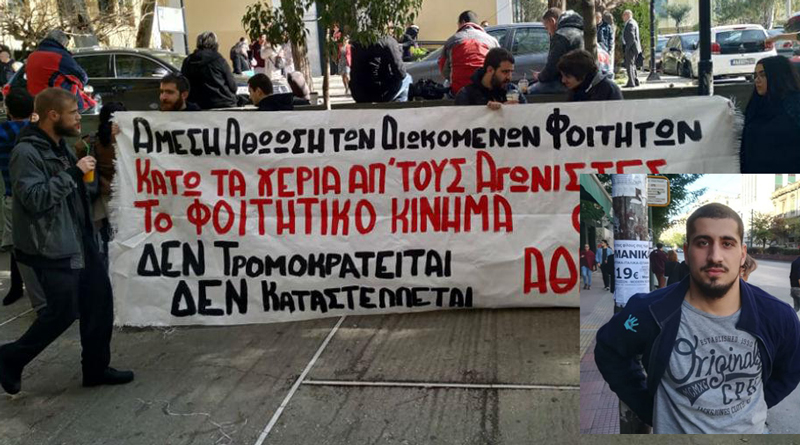 ΑΜΕΣΗ ΑΘΩΩΣΗ ΤΩΝ ΔΙΩΚΟΜΕΝΩΝ ΦΟΙΤΗΤΩΝ
ΚΑΤΩ ΤΑ ΧΕΡΙΑ ΑΠ' ΤΟΥΣ ΑΓΩΝΙΣΤΕΣ
ΤΟ ΦΟΙΤΗΤΙΚΟ ΚΙΝΗΜΑ
ΔΕΝ ΤΡΟΜΟΚΡΑΤΕΙΤΑΙ
ΔΕΝ ΚΑΤΑΣΤΕΛΛΕΤΑΙ
ΑΘ
ΜΑΝΙΚ
19€
ESTABLISHED 1990
Originals